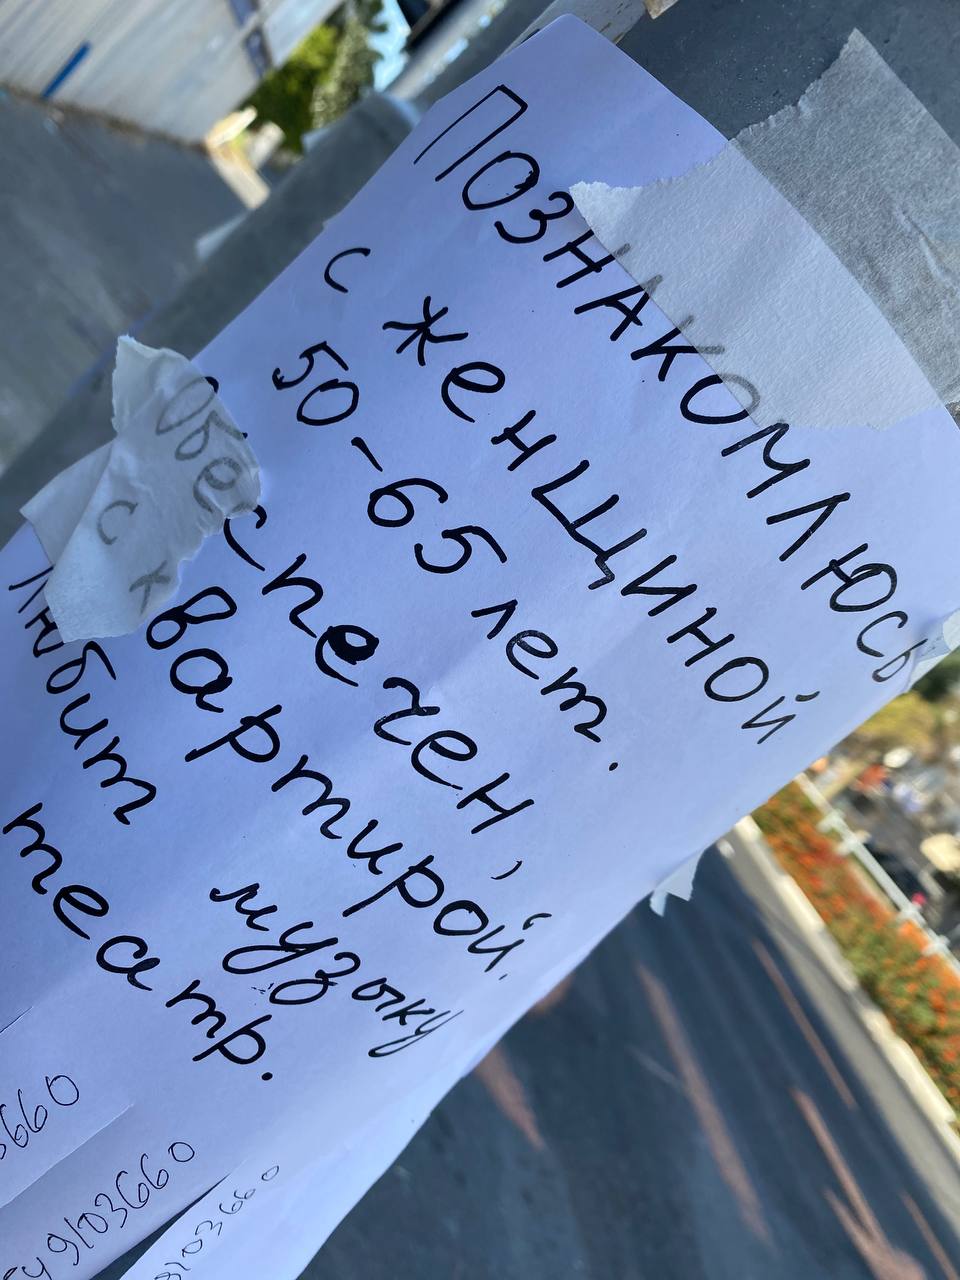 ПОЗНАКОМЛЮСЬ
с женщиной
50-65 лет.
Обеспечен,
с квартирой.
Любит музыку
театр.
3660
9103660
9103660